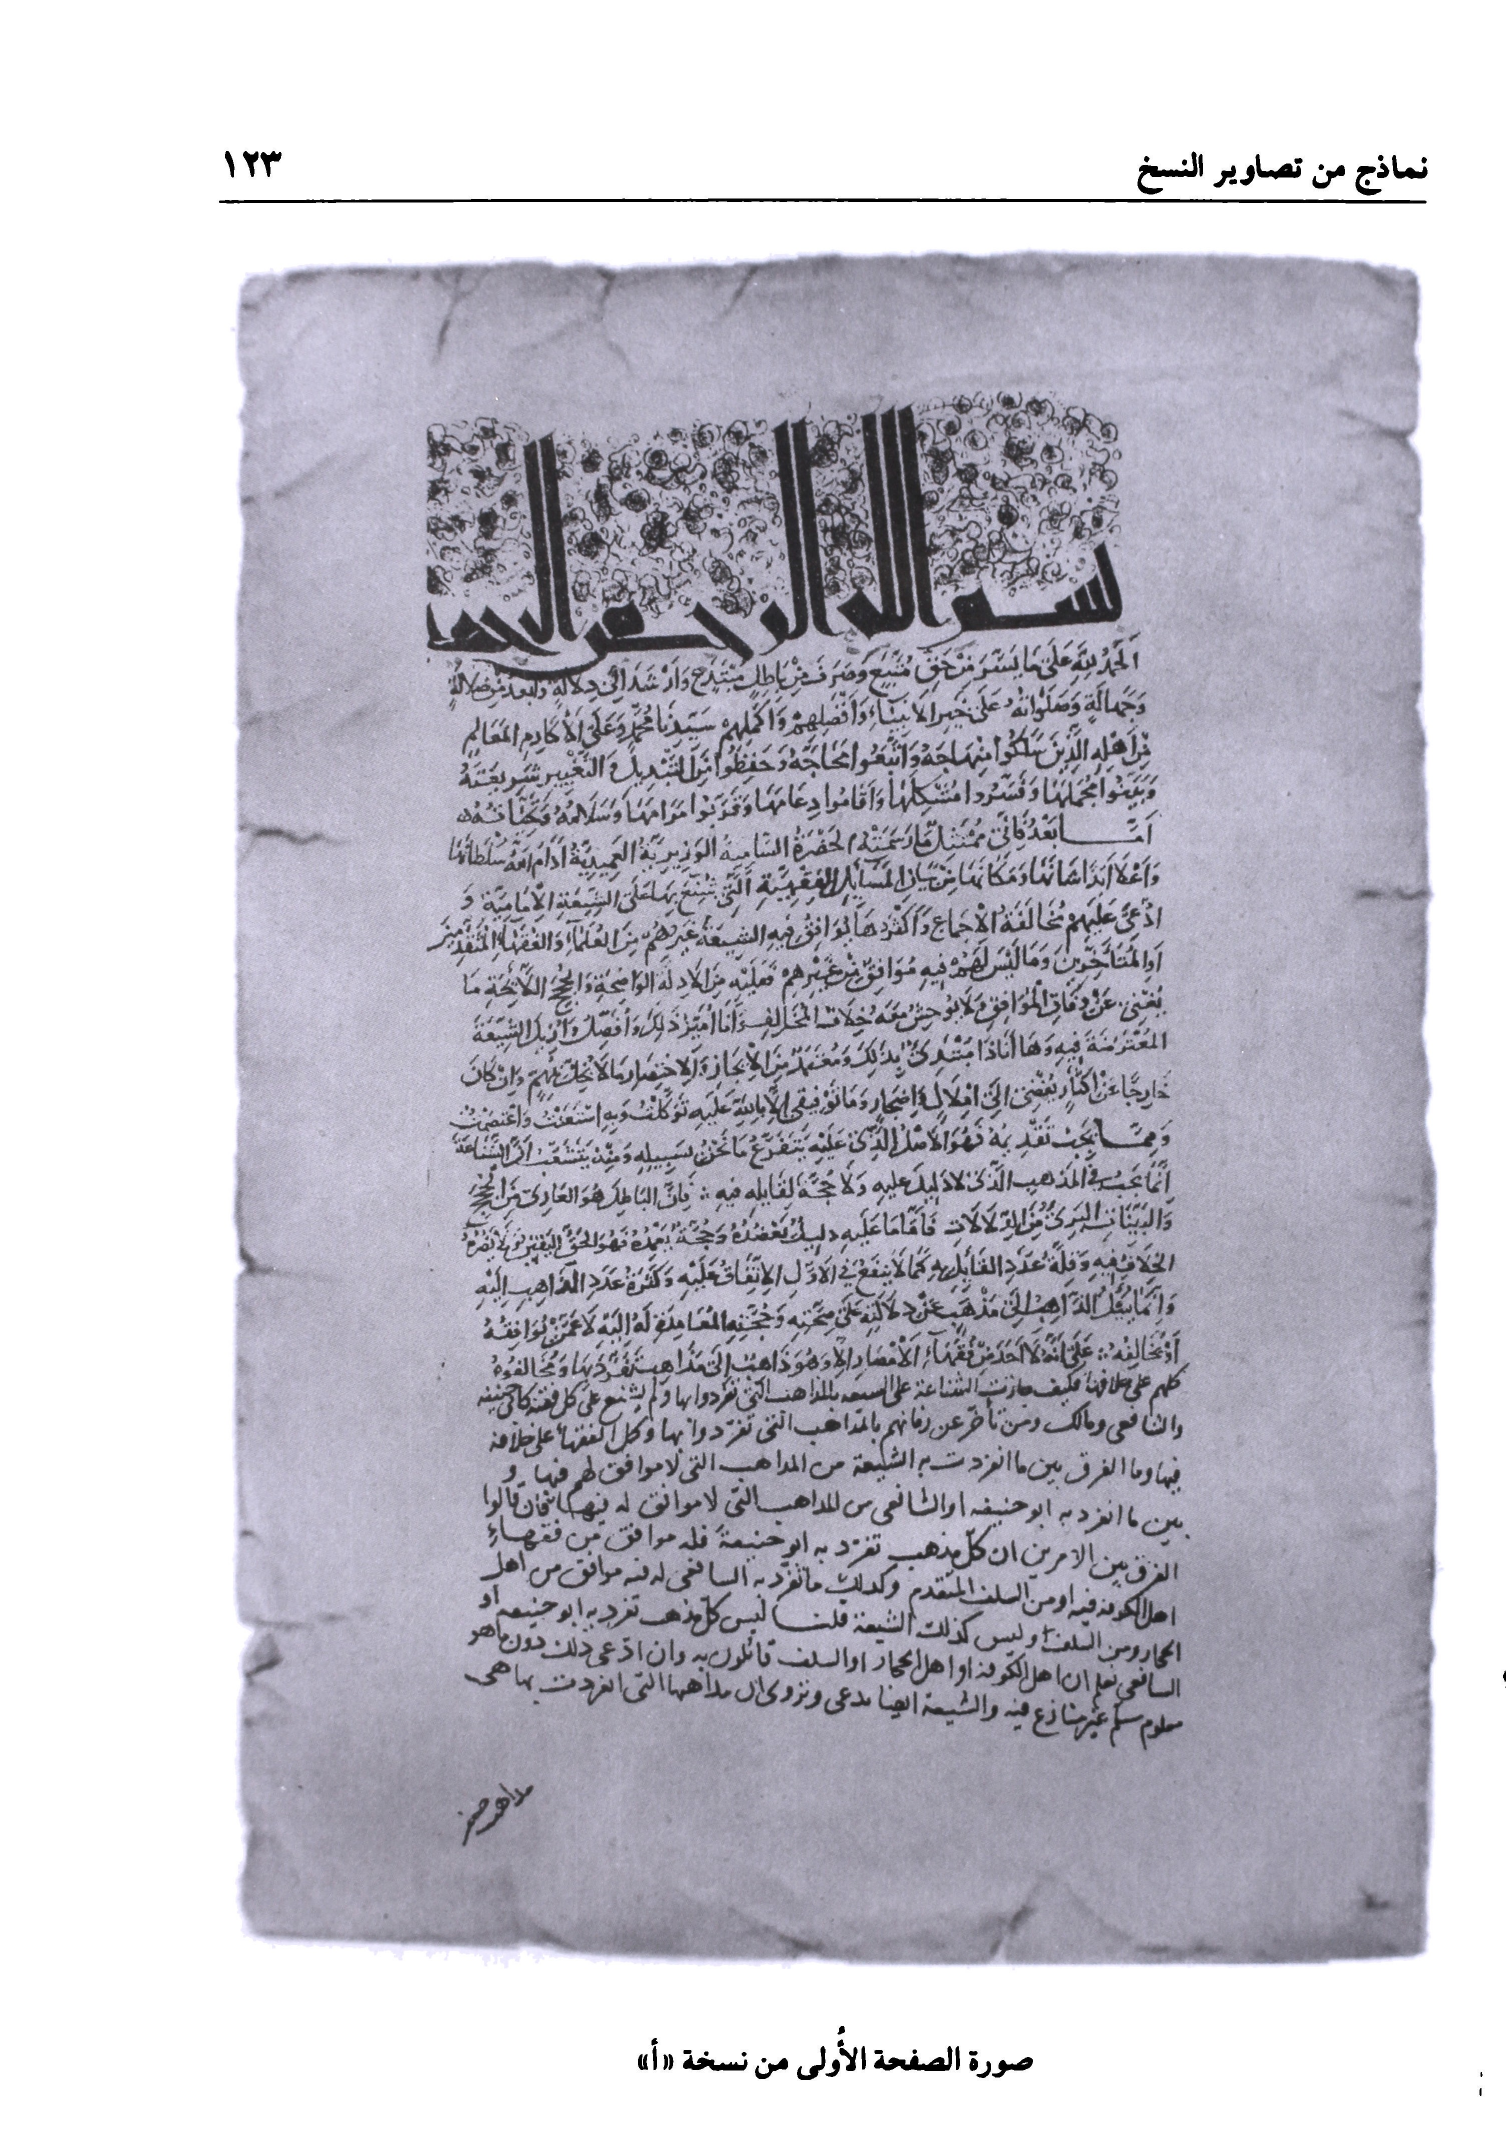 نماذج من تصاوير النسخ ١٢٣
بسم الله الرحمن الرحيم
اَلحَمدُ لِلّهِ عَلَى مَا يَسَّرَ مِنْ حَقٍّ مُتَّبَعٍ وَصَرَفَ مِنْ بَاطِلٍ مُبْتَدَعٍ وَأرْشَدَ إلى دِلالَةٍ وأبعد مِن ضَلالَةٍ
وَجَهَالَةٍ وَصَلَوَاتُهُ عَلَى خَيرِ الاَنبيَاءِ وَأفْضَلِهِمْ وَأكمَلِهِمْ سَيّدِنَا مُحَمَّدٍ وَعَلَى الأَكَارِمِ المَعَالمِ
مِنْ اَهْلِهِ الَّذِينَ سَلَكُوا مِنهاجَهُ وَاتَّبَعُوا محَاجَّهُ وَحَفِظُوا مِنَ التَّبْدِيلِ وَالتَّغْيِير شَرِيعَتَهُ
وَبَيَّنوا مُجمَلَهَا وَفَسَّرُوا مُشْكِلَهَا وَأقَامُوا دِعَامَهَا وَقَرّبُوا مَرَامَهَا وَسَلَامُهُ وَتحيّاتُهُ
اَمَّا بَعْدُ فَإنّى مُمْتَثِلٌ مَا رَسَمَتْهُ الحَضْرَةُ السَّاميةُ الوَزِيرِيَّةُ العَمِيدِيَّةُ أدَامَ اللهُ سُلْطَانَهَا
وَأعْلَا اَبَدًا شَانَهَا وَمَكَانَهَا مِنْ بَيَانِ المَسَائِلِ الفِقهِيَّةِ الَّتِي شُنِّعَ بِهَا عَلَى الشِّيعَةِ الإمَامِيَّةِ وَ
ادُّعىَ عَلَيهِمْ مُخَالَفَةُ الاجمَاعِ وَأكْثَرُهَا يُوَافِقُ فِيهِ الشِيعَةَ غَيرُهُمْ مِنَ العُلَمَاءِ وَالفُقَهَاءِ المُتَقَدِّمِينَ
اَوِ المُتَأَخّرِينَ وَمَا لَيْسَ لَهُمْ فِيهِ مُوَافِقٌ مِنْ غَيرِهِمْ فَعَلَيْهِ مِنَ الأدِلّةِ الوَاضِحَةِ وَالحُجَجِ اللاّئحَةِ مَا
يُغْنِى عَنْ وِفَاقِ الْمُوَافِقِ وَلَا يُوحِشُ مَعَهُ خِلَافُ المُخَالِفِ وَأنَا أُمَيّزُ ذَلِكَ وَأُفَصِّلُهُ وَأُزِيلُ الشُّبْهَةَ
المُعْتَرِضَةَ فِيهِ وَهَا أنَا ذَا مُبْتَدِئٌ بِذَلِكَ وَمُعْتَمِدٌ مِنَ الإيجَازِ والاخْتِصَارِ مَا لَا يُخِلُّ بِمُهِمٍّ وَإنْ كَانَ
خَارِجًا عَنْ إكْثَارٍ يُفْضِى إلى إمْلَالٍ وَإضْجَارٍ وَمَا تَوْفِيقِى إلّا بِاللهِ عَلَيهِ تَوَكَّلْتُ وَبِهِ اسْتَعَنْتُ وَاعْتَصَمْتُ
وَمِمَّا يَجِبُ تَقْدِيمُهُ فَهُوَ الأصْلُ الَّذِى عَلَيْهِ يَتَفَرَّعُ مَا نَحْنُ بِسَبِيلِهِ وَمِنْهُ يَتَشَعَّبُ أنَّ الشَّنَاعَةَ
إنَّمَا تَجِبُ فِى المَذهَبِ الَّذِى لَا دَلِيلَ عَلَيهِ وَلَا حُجَّةَ لِقَائِلِهِ فِيهِ ∴ فَإنَّ البَاطِلَ هُوَ العَارِى مِنَ الحُجَجِ
وَالبَيّنَاتِ البَرِئُ مِنَ الدِّلَالَاتِ فَأمَّا مَا عَلَيهِ دَلِيلٌ يَعْضُدُهُ وَحُجَّةٌ تَعْمِدُهُ فَهُوَ الحَقُّ اليَقِينُ وَلَا يَضُرُّهُ
الخِلَافُ فِيهِ وَقِلَّةُ عَدَدِ القَائِلِ بِهِ كَمَا لَا يَنفَعُ فِى الأوَّلِ الاِتِّفَاقُ عَلَيْهِ وَكَثْرَةُ عَدَدِ الذَّاهِبِ إلَيْهِ
وَإنَّمَا يُسْئَلُ الذَّاهِبُ إلَى مَذْهَبٍ عَنْ دِلَالَتِهِ عَلَى صِحَّتِهِ وَحُجَّتِهِ القَائِدَةِ لَهُ إلَيْهِ لَا عَمَّنْ يُوَافِقُهُ
أوْ يُخَالِفُهُ ∴ عَلَى أنَّهُ لَا أحَدَ مِنْ فُقَهَاءِ الأَمْصَارِ إلّا وَهُوَ ذَاهِبٌ إلَى مَذَاهِبَ تَفَرَّدَ بِهَا وَمُخَالِفُوهُ
كلهم على خلافها فكيف جازت الشناعة على الشيعه بالمذاهب التى تفردوا بها ولم يشنع على كل فقيه كابى حنيفه
والشافعى ومالك ومن تأخّر عن زمانهم بالمذاهب التى تفرّدوا بها وكل الفقهاء على خلافه
فيها وما الفرق بين ما انفردت به الشيعة من المذاهب التى لا موافق لهم فيها و
بين ما انفرد به ابو حنيفه او الشافعى من المذاهب التى لا موافق له فيها فان قالوا
الفرق بين الامرين ان كلّ مذهب تفرّد به ابو حنيفة فله موافق من فقهاءِ
اهل الكوفة فيه او من السلف المتقدم وكذلك ما تفرّد به الشافعى له فيه موافق من اهل
الحجاز ومن السلف وليس كذلك الشيعة قلنا ليس كلّ مذهب تفرد به ابو حنيفه أو
الشافعى نعلم ان اهل الكوفة او اهل الحجاز او السلف قائلون به وان ادّعى ذلك دون ما هو
معلوم مسلّم غير منازع فيه والشيعة ايضا تدعى وتروى ان مذاهبها التى انفردت بها هى
مذاهب
صورة الصفحة الأُولى من نسخة «أ»